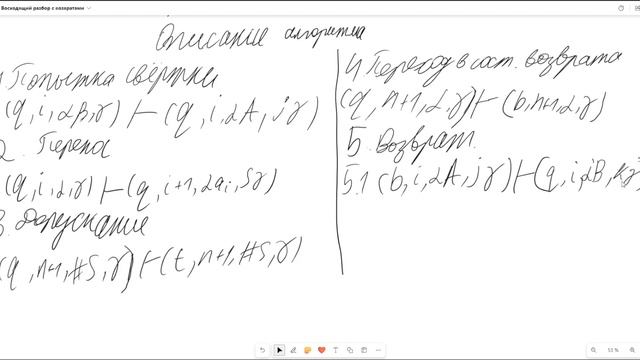 Восходящий разбор с возвратами
Описание алгоритма
1 Попытка свёртки
(q, i, αβ, γ) ⊢ (q, i, αA, jγ)
2. Перенос
(q, i, α, γ) ⊢ (q, i+1, αaᵢ, sγ)
3. Допускание
(q, n+1, #S, γ) ⊢ (t, n+1, #S, γ)
4 Переход в сост. возврата
(q, n+1, α, γ) ⊢ (b, n+1, α, γ)
5. Возврат
5.1 (b, i, αA, jγ) ⊢ (q, i, αB, kγ
53 %